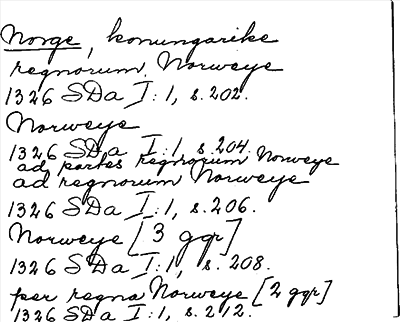 Norge, konungarike
regnorum Norweye
1326 SDa I:1, s. 202.
Norweye
1326 SDa I:1, s. 204.
ad partes regnorum Norweye
ad regnorum Norweye
1326 SDa I:1, s. 206.
Norweye [3 ggr]
1326 SDa I:1, s. 208.
per regna Norweye [2 ggr]
1326 SDa I:1, s. 212.